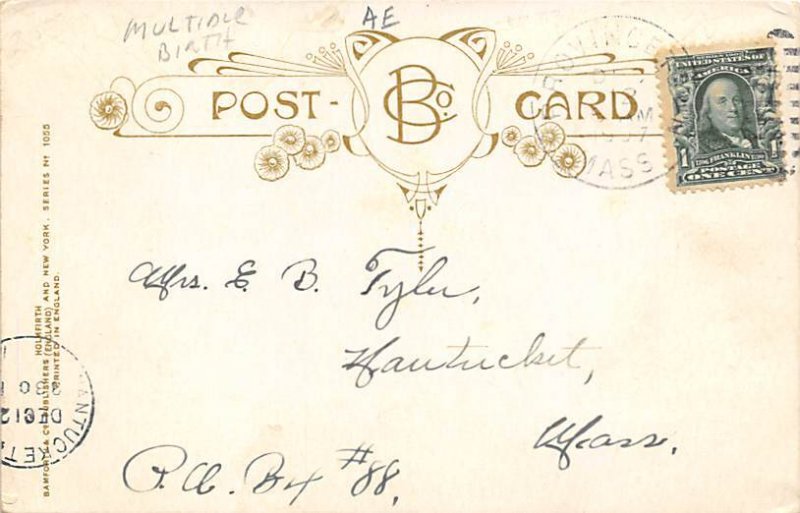 MULTIPLE
BIRTH
AE
POST-CARD
BCo.
MASS
UNITED STATES OF
AMERICA
FRANKLIN
POSTAGE
1 ONE CENT
Mrs. E. B. Tyler,
Nantucket,
Mass.
P.O. Box #88,
HOLMFIRTH
BAMFORTH & Co. PUBLISHERS (ENGLAND) AND NEW YORK. SERIES No 1055
PRINTED IN ENGLAND.
NANTUCKET
DEC 12